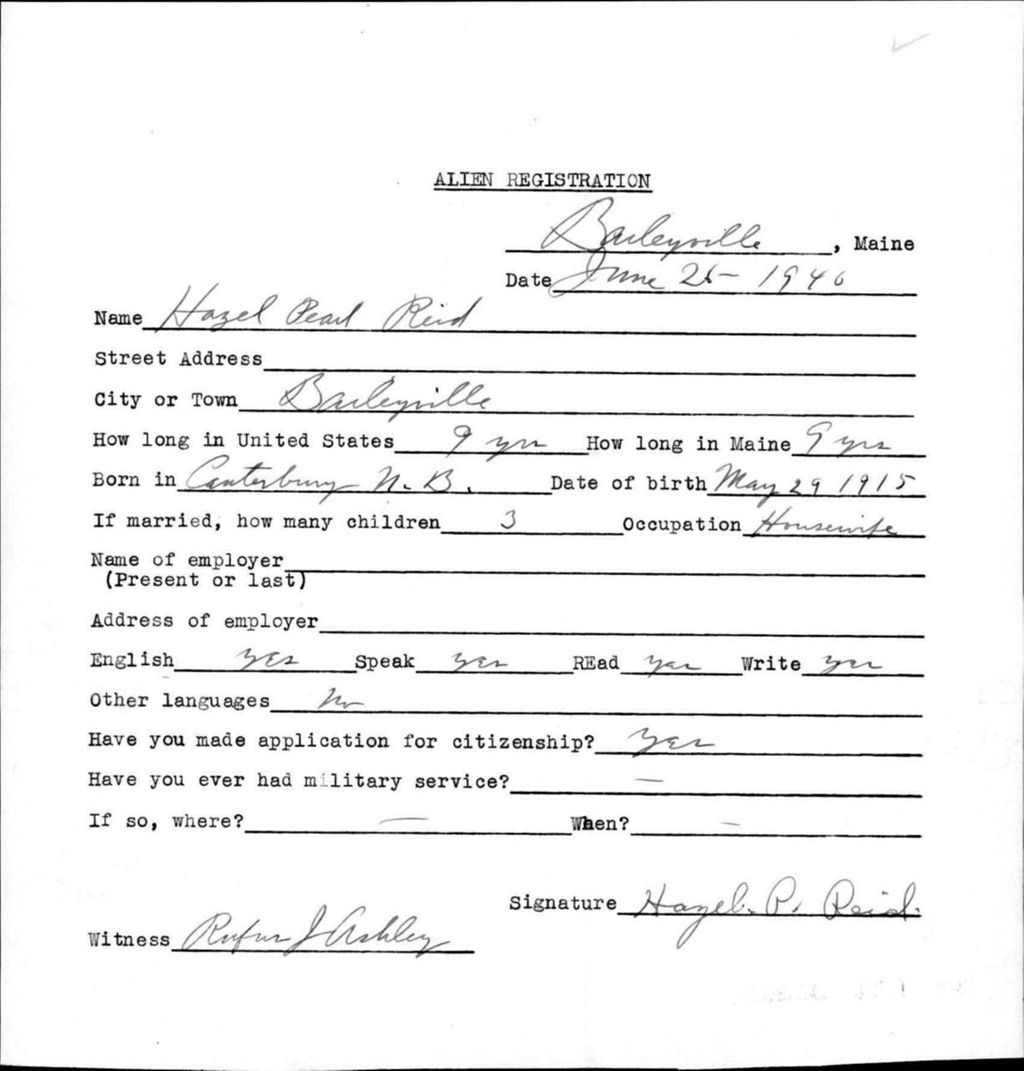 ALIEN REGISTRATION
Baileyville, Maine
Date June 25 - 1940
Name Hazel Pearl Reid
Street Address
City or Town Baileyville
How long in United States 9 yrs How long in Maine 9 yrs
Born in Canterbury N. B. Date of birth May 29 1915
If married, how many children 3 Occupation Housewife
Name of employer
(Present or last)
Address of employer
English yes Speak yes REad yes Write yes
Other languages No
Have you made application for citizenship? Yes
Have you ever had military service? —
If so, where? — When? —
Signature Hazel. P. Reid.
Witness Rufus J Ashley